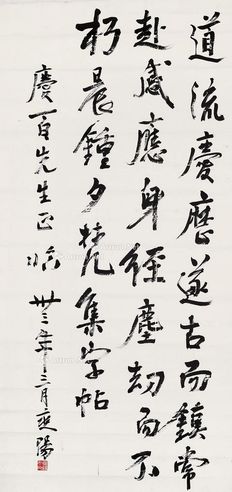 道流慶歷遂古而鎮常
赴感應身經塵劫而不
朽晨鍾夕梵集字帖
慶百先生正臨卅三年十三月奭陽